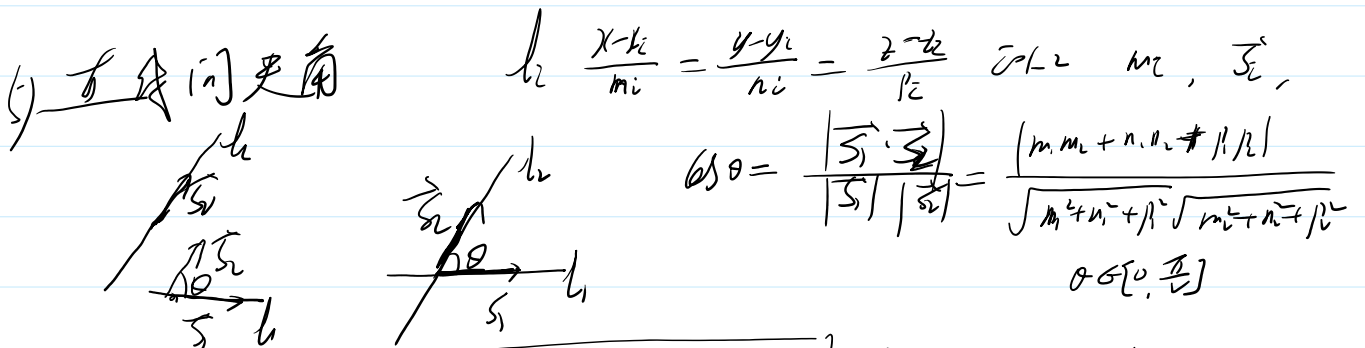 直线间夹角
l₂ (x-xᵢ)/mᵢ = (y-yᵢ)/nᵢ = (z-zᵢ)/pᵢ i=1.2
cosθ = |s₁⃗·s₂⃗| / (|s₁⃗| |s₂⃗|) = |m₁m₂+n₁n₂+p₁p₂| / (√(m₁²+n₁²+p₁²) √(m₂²+n₂²+p₂²))
θ∈[0, π/2]
l₂ s₂⃗ s₂⃗ θ s₁⃗ l₁
l₂ s₂⃗ θ s₁ l₁